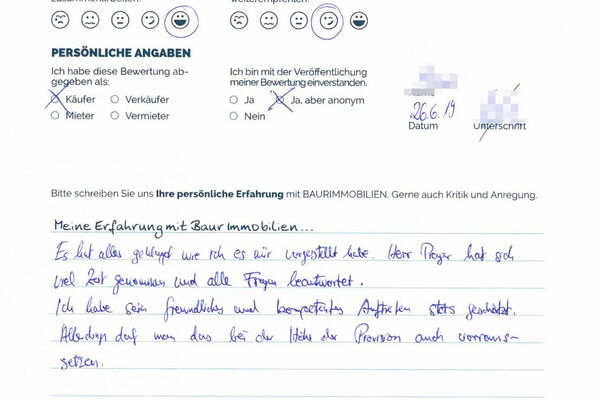 zusammenarbeiten.
weiterempfehlen.
PERSÖNLICHE ANGABEN
Ich habe diese Bewertung ab-
gegeben als:
Käufer Verkäufer
Mieter Vermieter
Ich bin mit der Veröffentlichung
meiner Bewertung einverstanden.
Ja Ja, aber anonym
Nein
26.6.19
Datum Unterschrift
Bitte schreiben Sie uns Ihre persönliche Erfahrung mit BAURIMMOBILIEN. Gerne auch Kritik und Anregung.
Meine Erfahrung mit Baur Immobilien...
Es hat alles geklappt wie ich es mir vorgestellt habe. Herr hat sich
viel Zeit genommen und alle Fragen beantwortet.
Ich habe sein freundliches und kompetentes Auftreten stets geschätzt.
Allerdings darf man das bei der Höhe der Provision auch vorraus-
setzen.